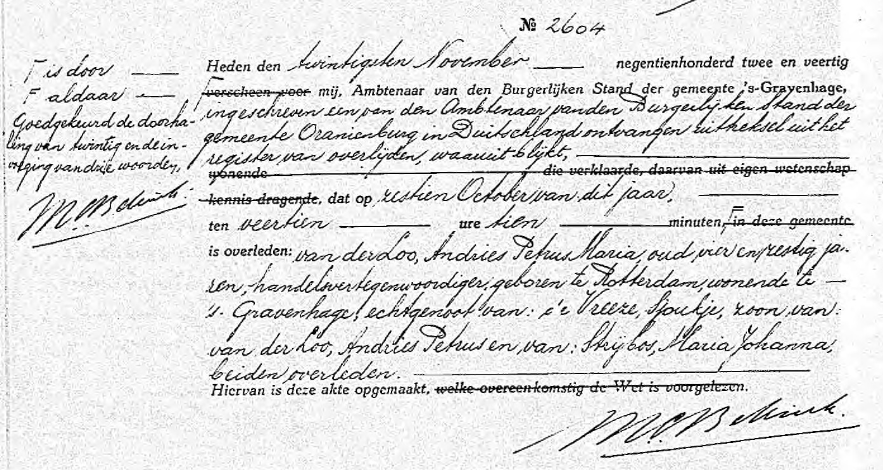 № 2604
Γ is door
Γ aldaar
Goedgekeurd de doorha-
ling van twintig en de in-
voeging van drie woorden,
Heden den twintigsten November negentienhonderd twee en veertig
Γ verscheen voor mij, Ambtenaar van den Burgerlijken Stand der gemeente 's-Gravenhage,
ingeschreven een van den Ambtenaar van den Burgerlijken Stand der
gemeente Oranienburg in Duitschland ontvangen uittreksel uit het
register van overlijden, waaruit blijkt,
wonende die verklaarde, daarvan uit eigen wetenschap
kennis dragende, dat op zestien October van dit jaar,
ten veertien ure tien minuten, Γ in deze gemeente
is overleden: van der Loo, Andries Petrus Maria, oud vier en zestig ja-
ren, handelsvertegenwoordiger, geboren te Rotterdam, wonende te
's-Gravenhage, echtgenoot van: de Vreeze, Sjoukje, zoon van:
van der Loo, Andries Petrus en van: Strijbos, Maria Johanna,
beiden overleden.
Hiervan is deze akte opgemaakt, welke overeenkomstig de Wet is voorgelezen.